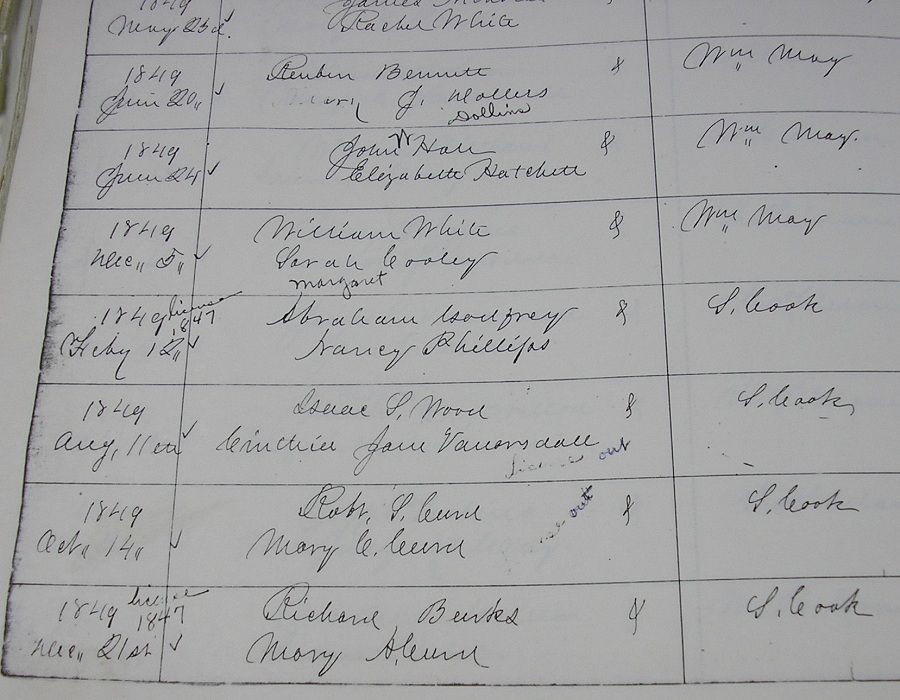 1849
May 23d.
Rachel White
1849 Reuben Bennett & Wm May
June 20 Mary J. Mollins
Sollins
1849 John W Hall & Wm May.
June 24 Elizabeth Hatchett
1849 William White & Wm May
Dec 5 Sarah Cooley
margaret
1849 license 1847 Abraham Godfrey & S. Cook
Feby 12 Nancy Phillips
1849 Isaac S. Wood & S. Cook
Aug, 11th Cinthia Jane Vanarsdall
license out
1849 Robt. S. Curd & S. Cook
Oct 14 Mary C. Curd
out
1849 license 1847 Richard Burks & S. Cook
Dec 21st Mary A. Curd